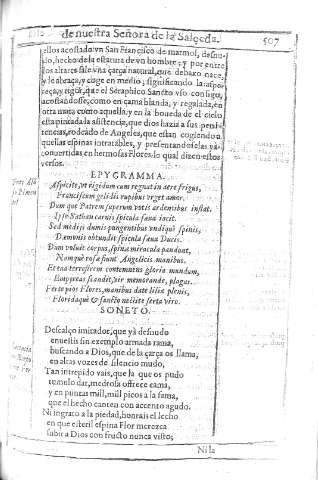 de nuestra Señora de la Salceda.
507
ellos acostado vn San Francisco de marmol, desnu-
do, hecho de la estatura de vn hombre, y por entre
los altares sale vna çarça natural, que debaxo nace,
y le abraça, y ciñe en memoria, significando la aspe-
reça, y rigor, que el Seraphico Sancto vso consigo,
acostandose, como en cama blanda, y regalada, en
otra mata como aquella, y en la boueda de el cielo
está pintada la asistencia, que dios hazia a sus peni-
tencias, rodeado de Angeles, que estan cogiendo
aquellas espinas intratables, y presentandoselas ya
conuertidas en hermosas Flores, lo qual dizen estos
versos.
EPYGRAMMA.
Aspicite, vt rigidum cum regnat in aere frigus,
Franciscum gelidis rupibus vrget amor.
Dum que Patrem superum votis ardentibus inflat.
Ipse Sathan carnis spicula saua iacit.
Sed medijs dumis pungentibus vndique spinis,
Dæmonis obtundit spicula saua Ducis.
Dum voluit corpus, spinæ miracula pandunt,
Namque rosæ fiunt Angelicis manibus.
Et ena terrestrem contemptus gloria mundum,
Empyreas scandit, vir memorande, plagas.
Ferte pios Flores, manibus date lilia plenis,
Floridaque & sancto nectite serta viro.
SONETO.
Descalço imitador, que ya desnudo
enuestis sin exemplo armada rama,
buscando a Dios, que de la çarça os llama,
en altas vozes de silencio mudo,
Tan intrepido vais, que la que os pudo
tumulo dar, medrosa ofrece cama,
y en puntas mill, mill picos a la fama,
que el hecho canten con accento agudo.
Ni ingrato a la piedad, honrais el lecho
en que esteril espina Flor merezca
subir a Dios con fructo nunca visto;
Ni la